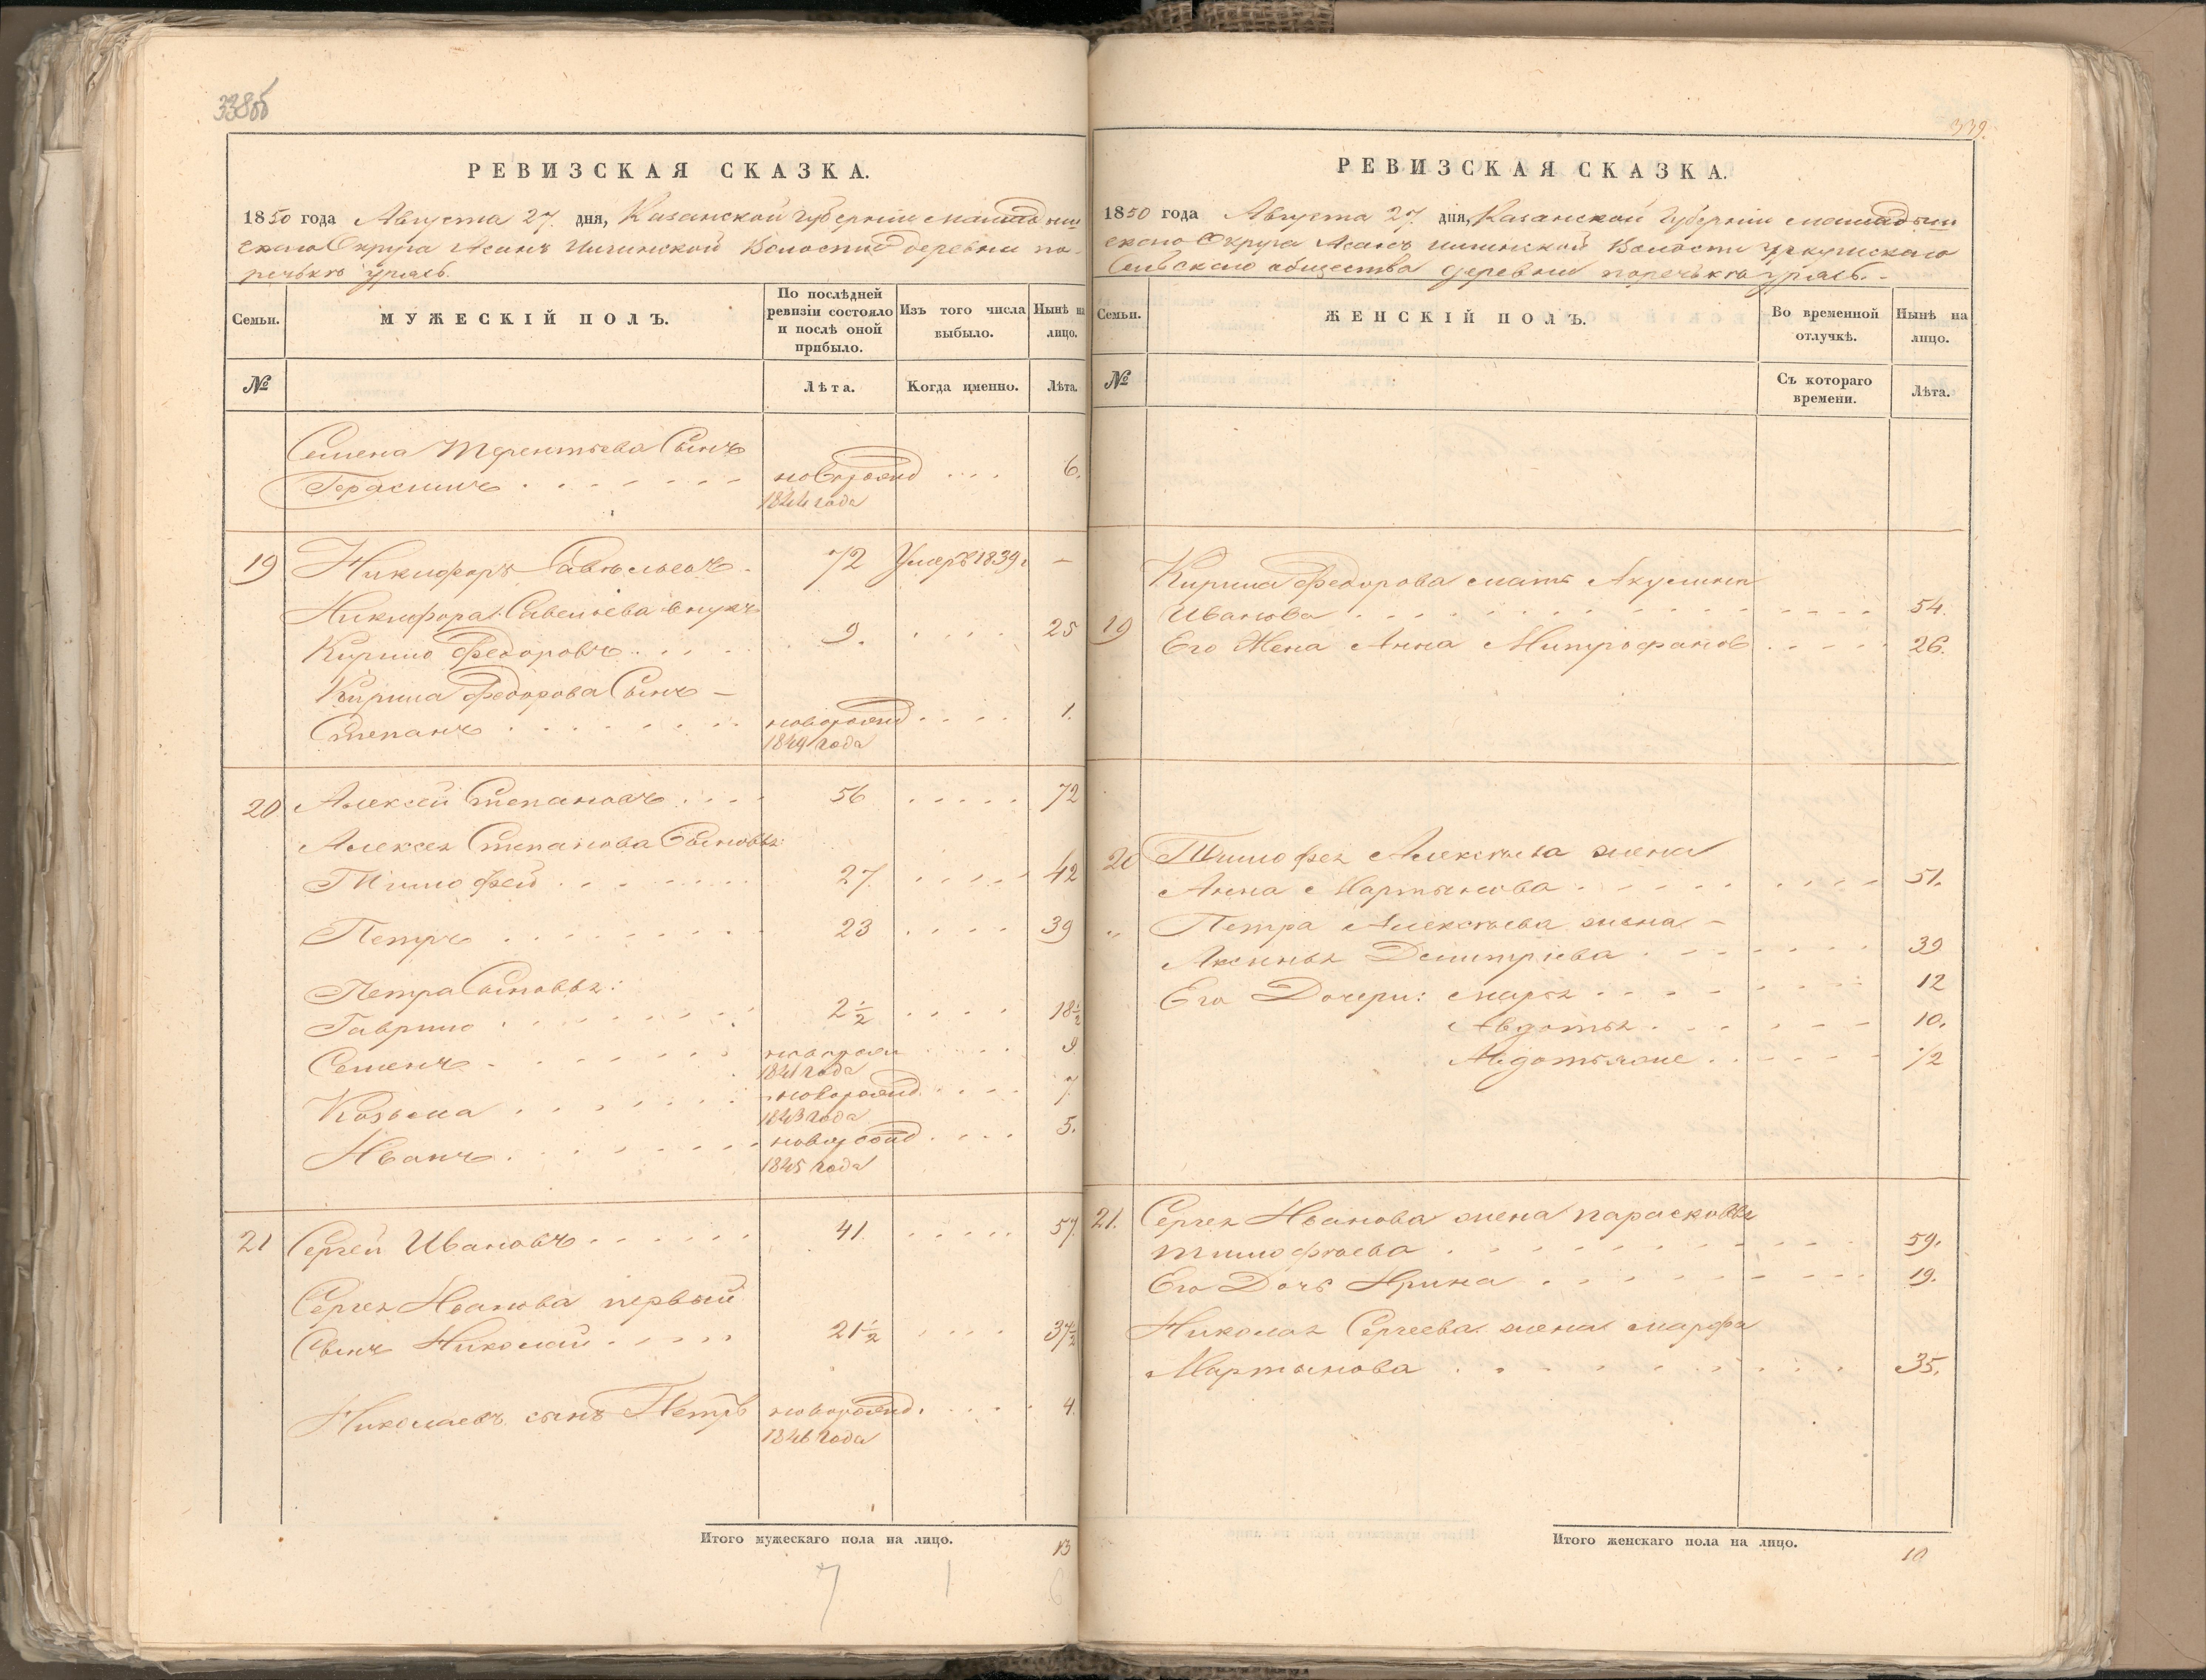 338об
РЕВИЗСКАЯ СКАЗКА.
1850 года Августа 27 дня, Казанской Губерніи Мамадыш
скаго Округа Асанъ Илгинской Волости деревни по
речькъ Уряьсь.
Семьи.
МУЖЕСКІЙ ПОЛЪ.
По послѣдней ревизіи состояло и послѣ оной прибыло.
Изъ того числа выбыло.
Нынѣ на лицо.
№
Лѣта.
Когда именно.
Лѣта.
Семена Терентьева Сынъ
Герасимъ новорожд 6.
1844 года
19 Никифоръ Савельевъ 72 Умеръ 1839 г –
Никифора Савельева внукъ
Кирило Федоровъ 9. 25
Кирила Федорова Сынъ –
Степанъ новорожд 1.
1849 года
20 Алексей Степановъ 56 72
Алексея Степанова Сыновья:
Тимофей 27 42
Петръ 23 39
Петра Сыновья:
Гаврило 2½ 18½
Семенъ новорожд 9
1841 года
Козьма новорожд 7
1843 года
Иванъ новорожд 5.
1845 года
21 Сергей Ивановъ 41. 57
Сергея Иванова первый
Сынъ Николай 21½ 37½
Николаевъ сынъ Петръ новорожд. 4.
1846 года
Итого мужескаго пола на лицо. 13
7 1 6
339.
РЕВИЗСКАЯ СКАЗКА.
1850 года Августа 27 дня, Казанской Губерніи Мамадыш
скаго Округа Асанъ Илгинской Волости
Сельскаго общества деревни поречькъ Уряьсь. -
Семьи.
ЖЕНСКІЙ ПОЛЪ.
Во временной отлучкѣ.
Нынѣ на лицо.
№
Съ котораго времени.
Лѣта.
Кирила Федорова мать Акулина
19 Иванова 54.
Его Жена Анна Митрофанов 26.
20 Тимофея Алексѣева жена
Анна Мартынова 51.
„ Петра Алексѣева жена –
Аксинья Демитріева 39
Его Дочери: Марья 12
Авдотья 10.
Авдотьяже ½
21. Сергея Иванова жена парасковья
Тимофѣева 59.
Его Дочь Ирина 19.
Николая Сергеева жена марфа
Мартынова 35.
Итого женскаго пола на лицо. 10